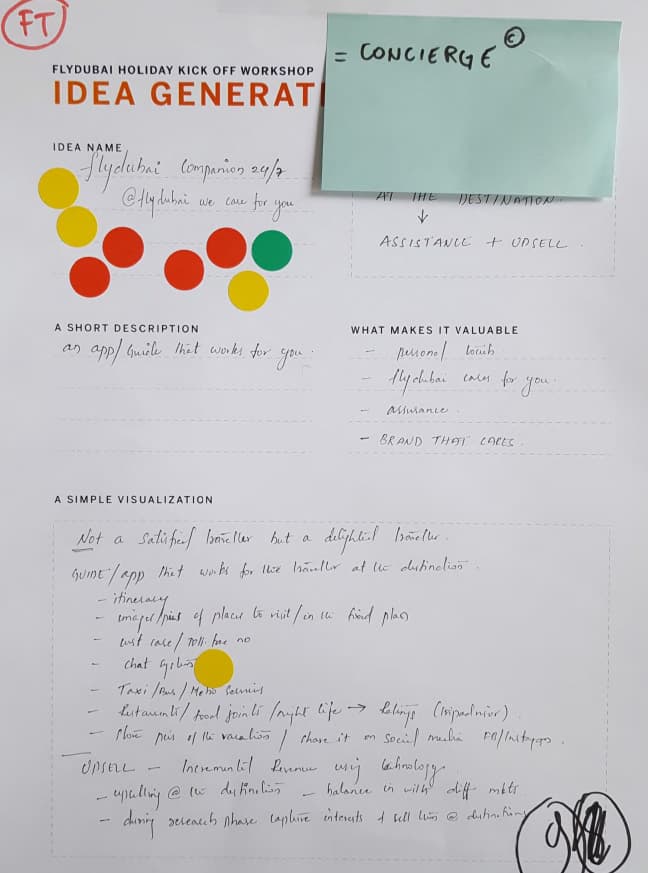 FT
= CONCIERGE ©
FLYDUBAI HOLIDAY KICK OFF WORKSHOP
IDEA GENERAT
IDEA NAME
flydubai Companion 24/7
@flydubai we care for you
AT THE DESTINATION.
↓
ASSISTANCE + UPSELL.
A SHORT DESCRIPTION
an app/Guide that works for you.
WHAT MAKES IT VALUABLE
- personal touch
- flydubai cares for you.
- assurance
- BRAND THAT CARES.
A SIMPLE VISUALIZATION
Not a satisfied traveller but a delighted traveller.
GUIDE/app that works for the traveller at the destination.
- itinerary
- images/pics of places to visit/in the fixed plan
- cust care/Toll free no
- chat
- Taxi/Bus/Metro Services
- Restaurants/food joints/night life → Ratings (tripadvisor).
- Store pics of the vacation/share it on social media FB/Instagram.
UPSELL - Incremental Revenue using technology
- upselling @ the destination - balance in with diff mkts
- during research phase capture interests & sell this @ destination
9